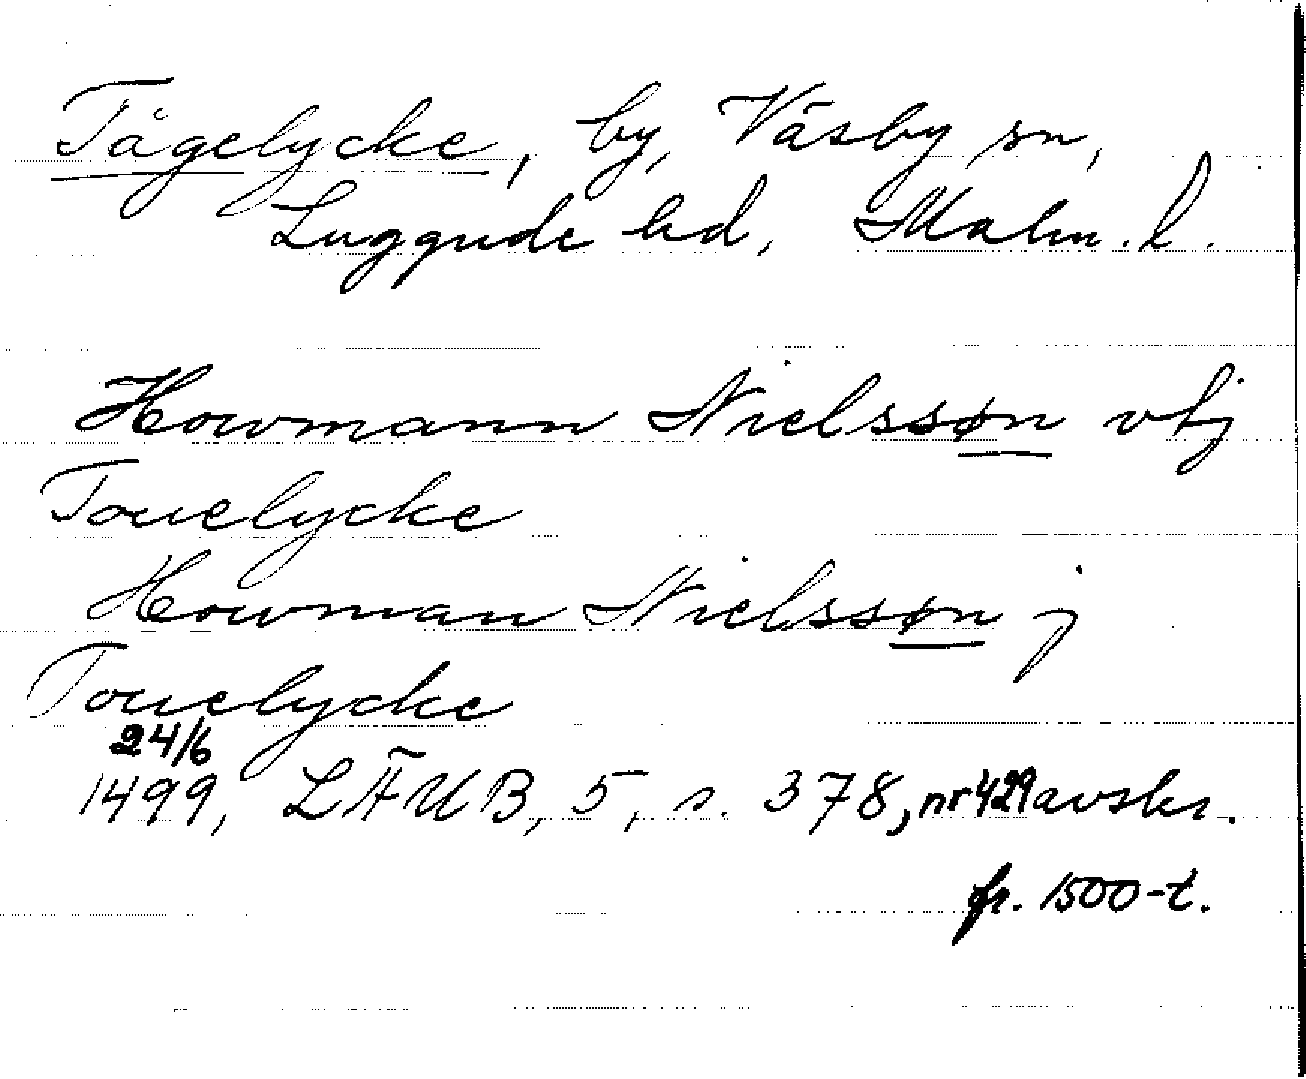 Tågelycke, by, Väsby sn,
Luggude hd, Malm. l.
Howmann Nielssøn vtj
Touelycke
Howman Nielssøn j
Touelycke
24/6
1499, LÄUB, 5, s. 378, nr 429 avskr.
fr. 1500-t.